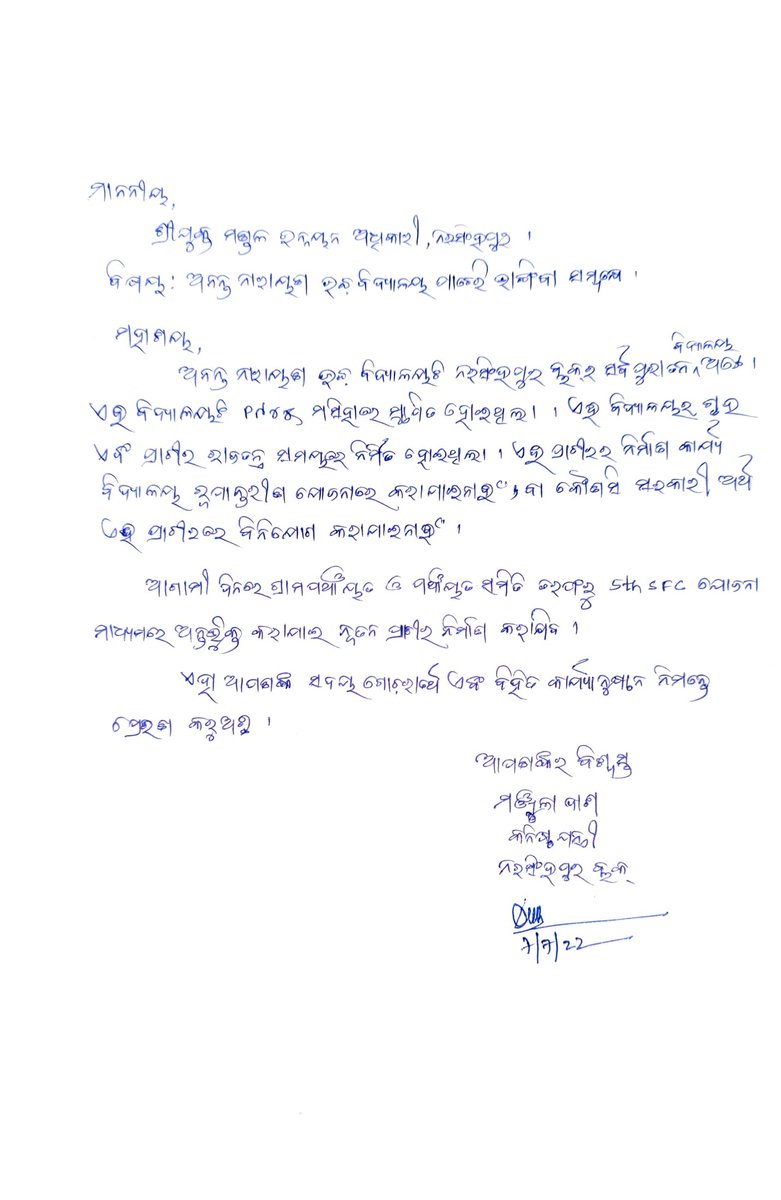 ମାନନୀୟ,
ଶ୍ରୀଯୁକ୍ତ ମଣ୍ଡଳ ଉନ୍ନୟନ ଅଧିକାରୀ, ନରସିଂହପୁର ।
ବିଷୟ: ଅନନ୍ତ ନାରାୟଣ ଉଚ୍ଚ ବିଦ୍ୟାଳୟ ପାଚେରି ଭାଙ୍ଗିବା ସମ୍ବନ୍ଧେ ।
ମହାଶୟ,
ଅନନ୍ତ ନାରାୟଣ ଉଚ୍ଚ ବିଦ୍ୟାଳୟଟି ନରସିଂହପୁର ବ୍ଲକର ସର୍ବ ପୁରାତନ ବିଦ୍ୟାଳୟ ଅଟେ ।
ଏହି ବିଦ୍ୟାଳୟଟି ମସିହାରେ ସ୍ଥାପିତ ହୋଇଥିଲା । ଏହି ବିଦ୍ୟାଳୟର ଗୃହ
ଏବଂ ପ୍ରାଚୀର ରାଜତନ୍ତ୍ର ସମୟରେ ନିର୍ମିତ ହୋଇଥିଲା । ଏହି ପ୍ରାଚୀରର ନିର୍ମାଣ କାର୍ଯ୍ୟ
ବିଦ୍ୟାଳୟ ରୂପାନ୍ତରୀଣ ଯୋଜନାରେ କରାଯାଇନାହିଁ, ବା କୌଣସି ସରକାରୀ ଅର୍ଥ
ଏହି ପ୍ରାଚୀରରେ ବିନିଯୋଗ କରାଯାଇନାହିଁ ।
ଆଗାମୀ ଦିନରେ ଗ୍ରାମପଞ୍ଚାୟତ ଓ ପଞ୍ଚାୟତ ସମିତି ତରଫରୁ 5th SFC ଯୋଜନା
ମାଧ୍ୟମରେ ଅନ୍ତର୍ଭୁକ୍ତ କରାଯାଇ ନୂତନ ପ୍ରାଚୀର ନିର୍ମାଣ କରାଯିବ ।
ଏହା ଆପଣଙ୍କ ସଦୟ ଗୋଚରାର୍ଥେ ଏବଂ ବିହିତ କାର୍ଯ୍ୟାନୁଷ୍ଠାନ ନିମନ୍ତେ
ପ୍ରେରଣ କରୁଅଛୁ ।
ଆପଣଙ୍କର ବିଶ୍ୱସ୍ତ
ମଞ୍ଜୁଳା ଦାଶ
କନିଷ୍ଠ ଯନ୍ତ୍ରୀ
ନରସିଂହପୁର ବ୍ଲକ୍
7/7/22